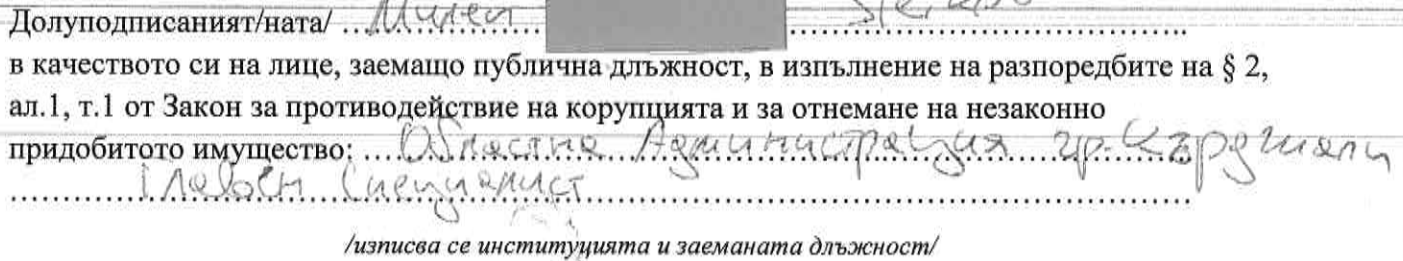 Долуподписаният/ната/ ...Милен
в качеството си на лице, заемащо публична длъжност, в изпълнение на разпоредбите на § 2,
ал.1, т.1 от Закон за противодействие на корупцията и за отнемане на незаконно
придобитото имущество: ....Областна Администрация гр. Кърджали
Главен Специалист
/изписва се институцията и заеманата длъжност/